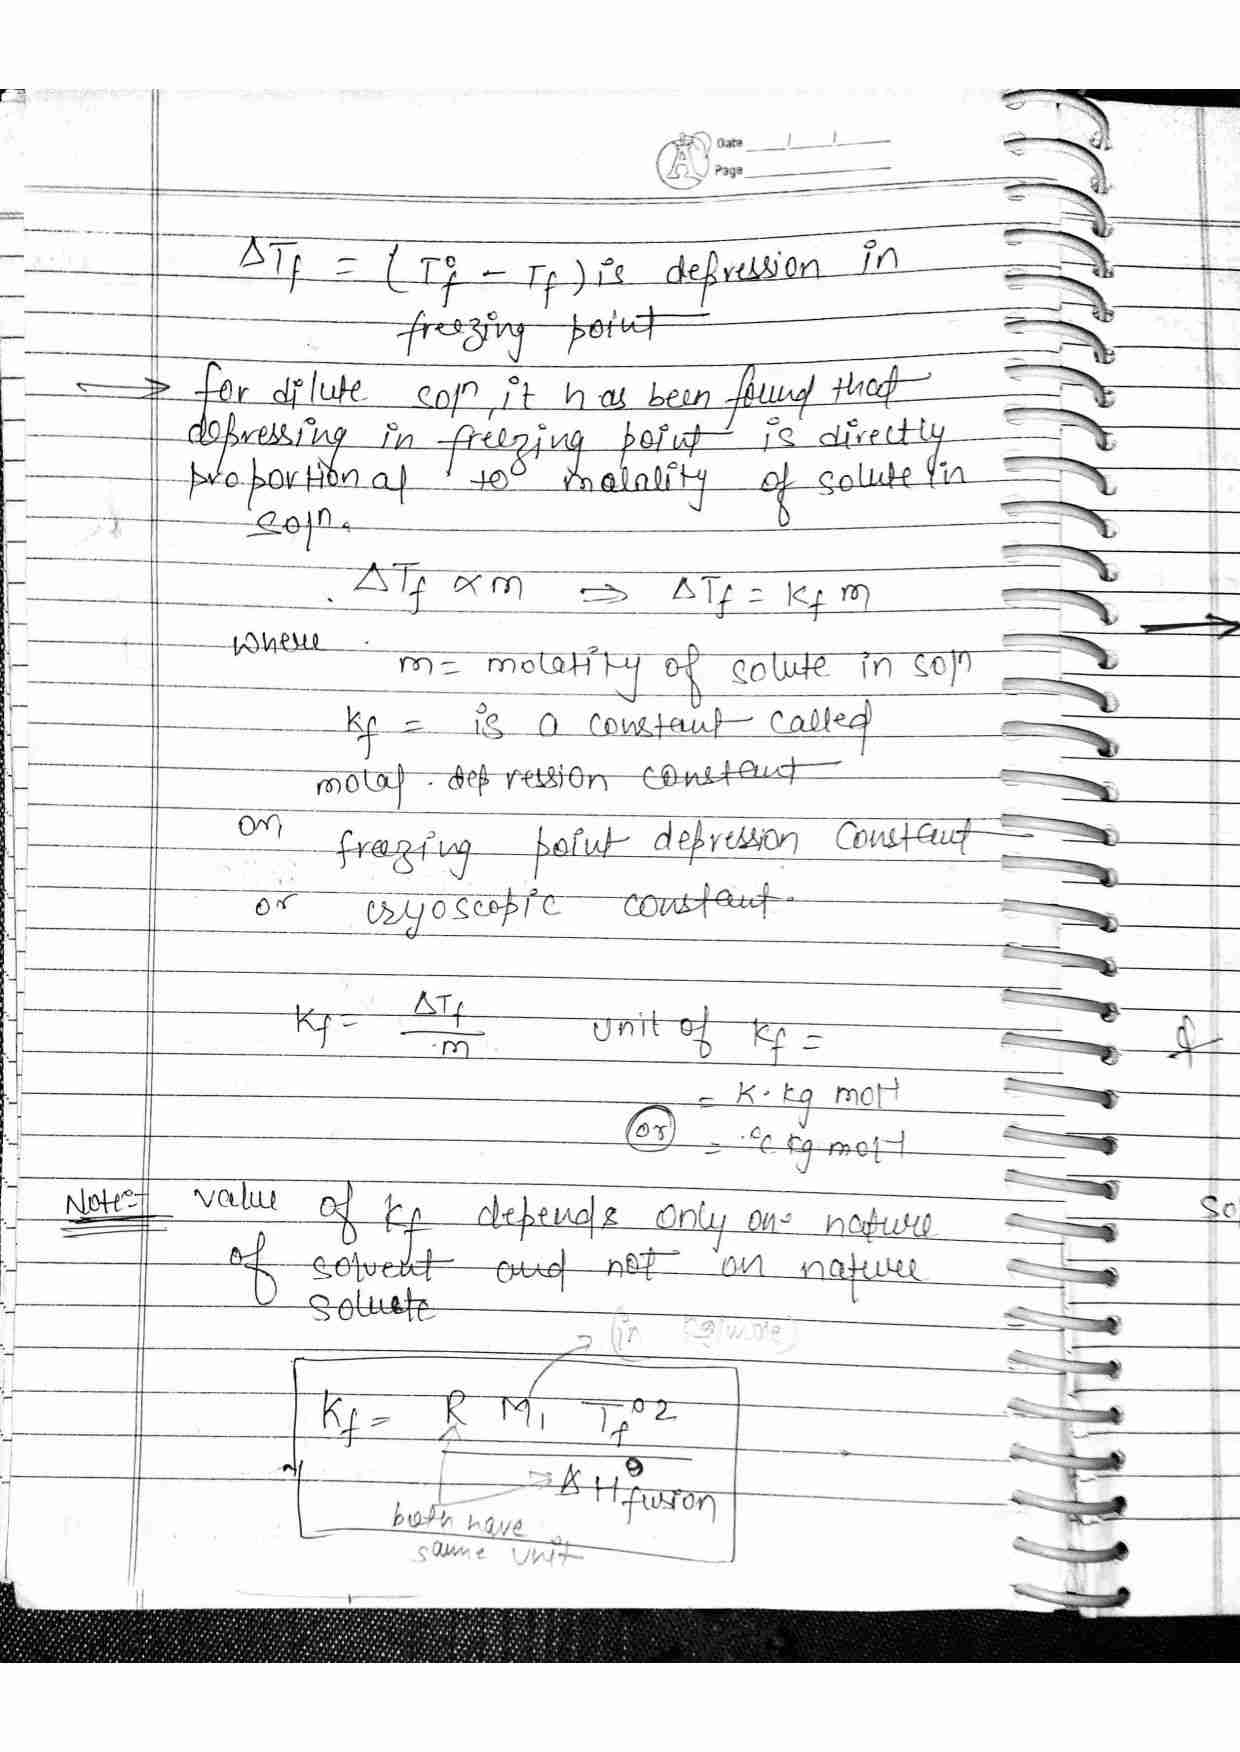 Date
Page
ΔTf = (T°f - Tf) is depression in
freezing point
→ for dilute solⁿ, it has been found that
depressing in freezing point is directly
proportional to molality of solute in
solⁿ.
ΔTf ∝ m ⇒ ΔTf = Kf m
where
m = molality of solute in solⁿ
Kf = is a constant called
molal depression constant
or freezing point depression constant
or cryoscopic constant.
Kf = ΔTf / m unit of Kf =
= K·kg mol⁻¹
or = °C kg mol⁻¹
Note:- value of Kf depends only on nature
of solvent and not on nature
solute
(in
Kf = R M₁ T°f²
ΔH°fusion
both have
same unit